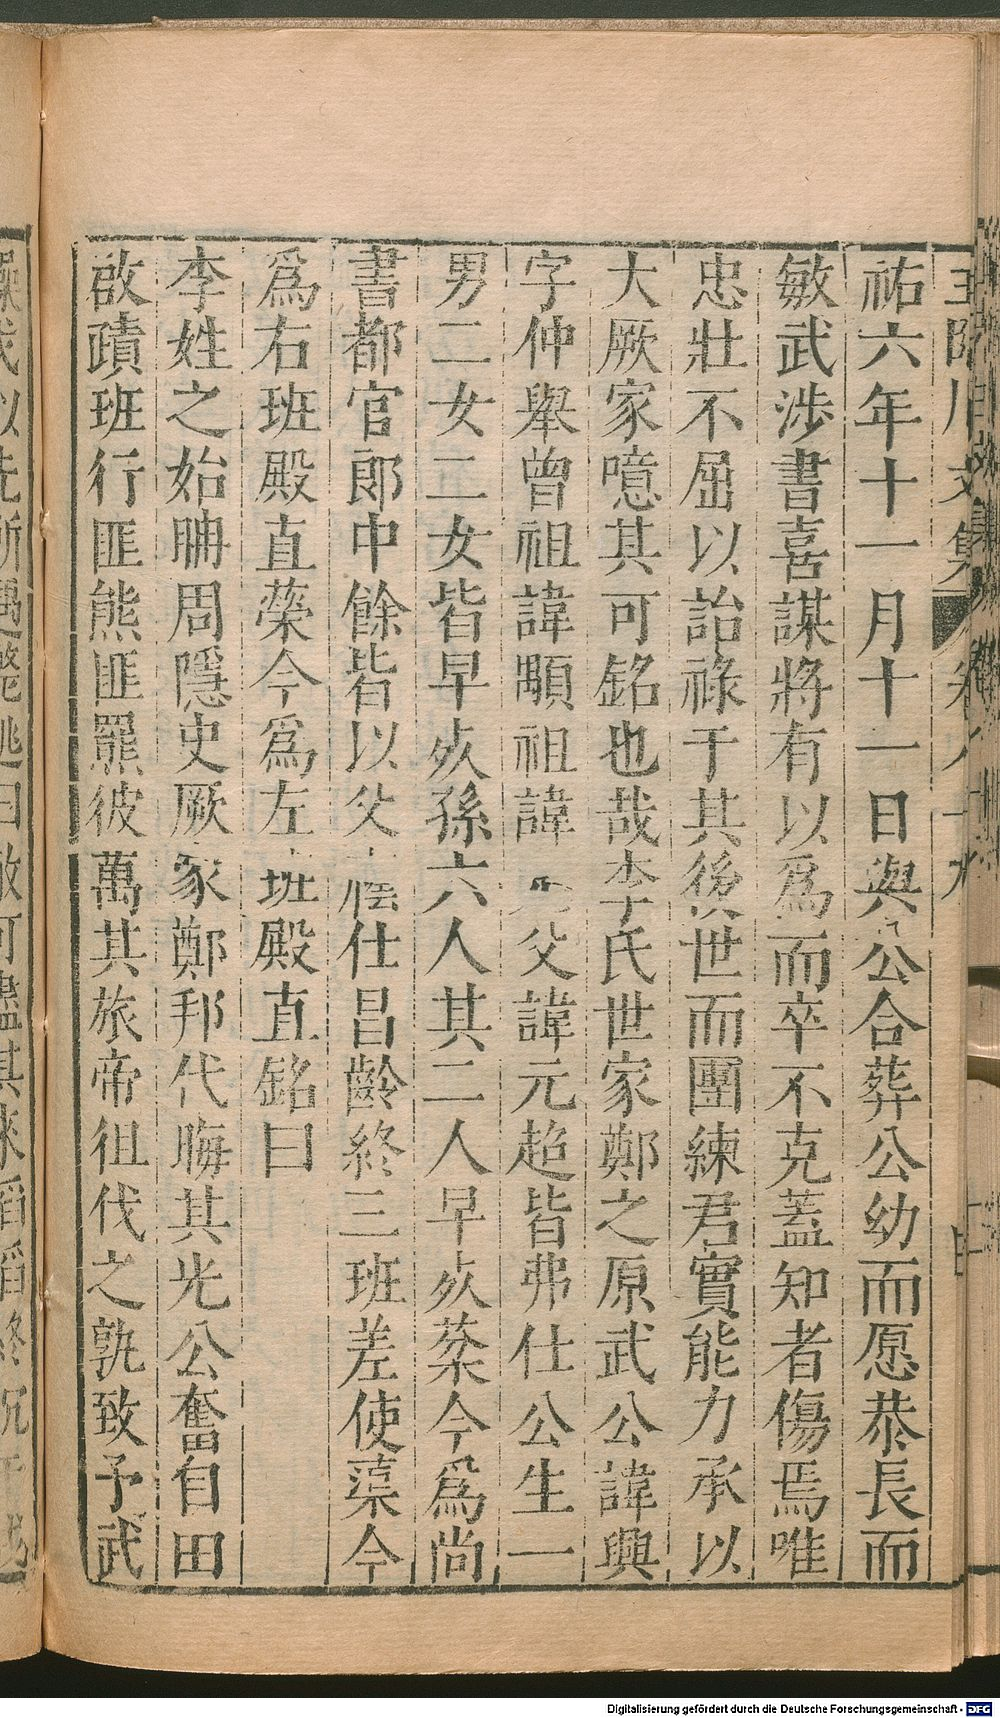 祐六年十一月十一日與公合葬公幼而愿恭長而
敏武涉書喜謀將有以爲而卒不克蓋知者傷焉唯
忠壯不屈以詒祿于其後世而團練君實能力承以
大厥家噫其可銘也哉李氏世家鄭之原武公諱興
字仲舉曾祖諱顒祖諱 父諱元超皆弗仕公生一
男二女二女皆早夭孫六人其二人早夭蔡今爲尚
書都官郎中餘皆以父 仕昌齡終三班差使蕖今
爲右班殿直蘂今爲左班殿直銘曰
李姓之始聃周隱史厥家鄭邦代晦其光公奮自田
啟蹟班行匪熊匪羆彼萬其旅帝徂伐之孰致予武
Digitalisierung gefördert durch die Deutsche Forschungsgemeinschaft - DFG